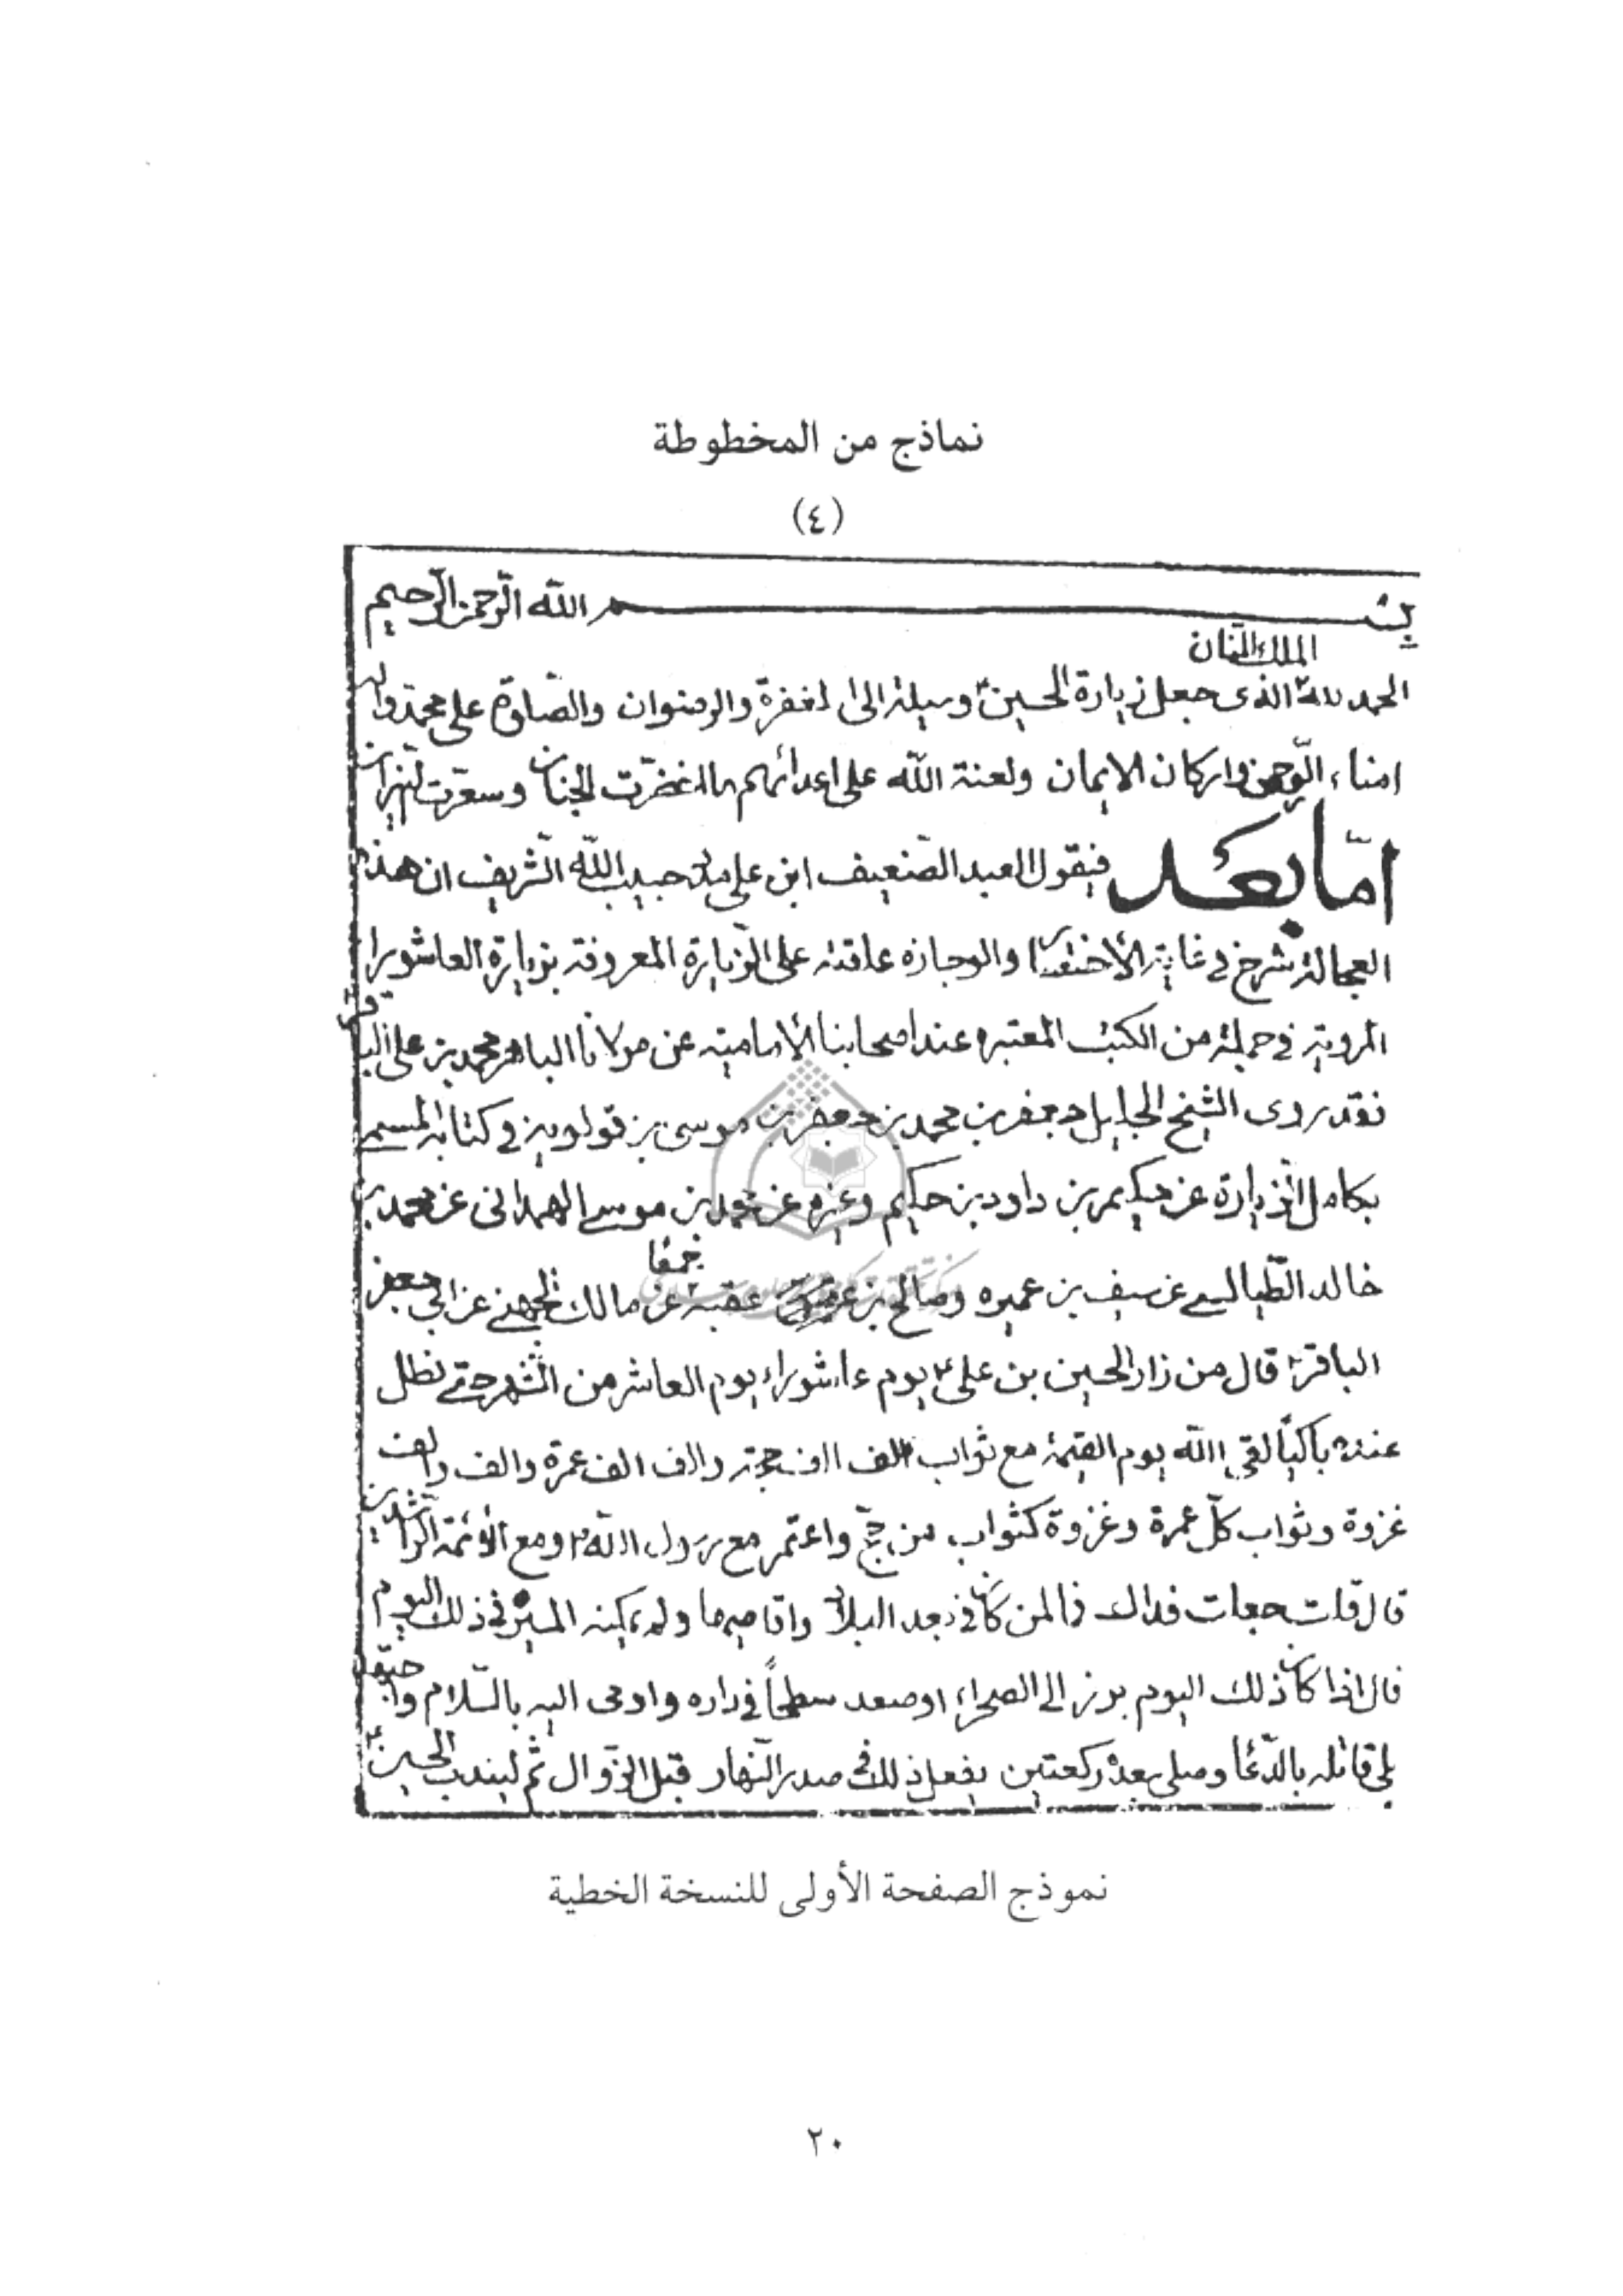 نماذج من المخطوطة
(٤)
بسم الله الرّحمن الرّحيم
الملك المنّان
الحمد لله الذى جعل زيارة الحسين ع وسيلة الى المغفرة والرضوان والصّلوة على محمّد وآله
امناء الرّحمن واركان الايمان ولعنة الله على اعدائهم ما اخضرّت الجنان وسعّرت النيران
امّا بعد فيقول العبد الضّعيف ابن على مدد حبيب الله الشّريف ان هذه
العجالة شرح فى غاية الأختصار والوجازه علقته على الزّيارة المعروفة بزيارة العاشورا
المروية فى جملة من الكتب المعتبره عند اصحابنا الأماميّه عن مولانا الباقر محمد بن على الباقر
فقد روى الشيخ الجليل جعفر بن محمد بن جعفر بن موسى بن قولويه فى كتابه المسمى
بكامل الزيارة عن حكيم بن داود بن حكيم وغيره عن محمد بن موسى الهمدانى عن محمد بن
خالد الطّيالسى عن سيف بن عميره وصالح بن عقبة جميعًا عن عقبة عن مالك الجهنى عن ابى جعفر
الباقر ع قال من زار الحسين بن على ع يوم عاشوراء يوم العاشر من الشّهر حتى يظل
عنده باكيًا لقى الله يوم القيمة مع ثواب الف الف حجة والف الف عمرة والف والف
غزوة وثواب كلّ عمرة وغزوة كثواب من حجّ واعتمر مع رسول الله ص ومع الأئمة الراشدين
قال قلت جعلت فداك فما لمن كان فى بعد البلاد واقاصيها ولم يمكنه المسير فى ذلك اليوم
قال اذا كان ذلك اليوم برز الى الصحراء او صعد سطحًا فى داره واومى اليه بالسّلام واجتهد
على قاتله بالدّعا وصلى بعده ركعتين يفعل ذلك فى صدر النّهار قبل الزّوال ثم ليندب الحسين ع
نموذج الصفحة الأولى للنسخة الخطية
٢٠